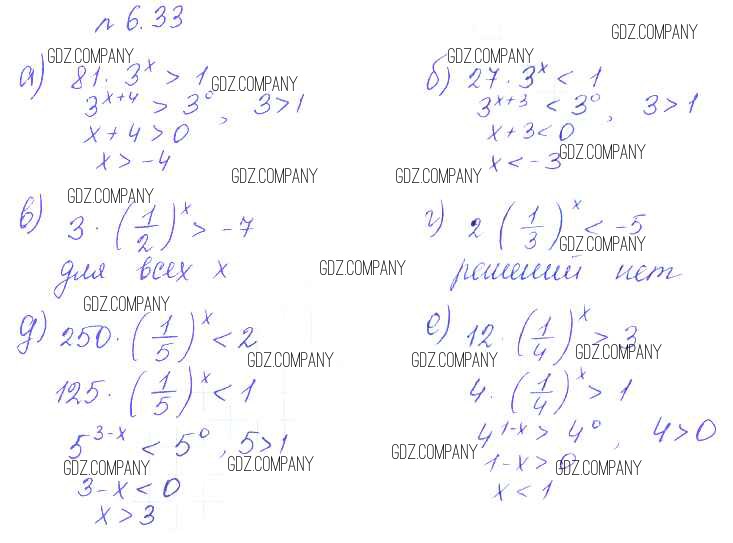 № 6.33
GDZ.COMPANY
GDZ.COMPANY
а) 81 · 3^x > 1
GDZ.COMPANY
3^(x+4) > 3^0, 3 > 1
x + 4 > 0
x > -4
GDZ.COMPANY
GDZ.COMPANY
б) 27 · 3^x < 1
3^(x+3) < 3^0, 3 > 1
x + 3 < 0
GDZ.COMPANY
x < -3
GDZ.COMPANY
GDZ.COMPANY
в) 3 · (1/2)^x > -7
для всех x
GDZ.COMPANY
г) 2 (1/3)^x < -5
GDZ.COMPANY
решений нет
GDZ.COMPANY
д) 250 · (1/5)^x < 2
GDZ.COMPANY
125 · (1/5)^x < 1
5^(3-x) < 5^0, 5 > 1
GDZ.COMPANY
GDZ.COMPANY
3 - x < 0
x > 3
е) 12 · (1/4)^x > 3
GDZ.COMPANY
GDZ.COMPANY
4 · (1/4)^x > 1
4^(1-x) > 4^0, 4 > 0
GDZ.COMPANY
1 - x > 0
GDZ.COMPANY
x < 1